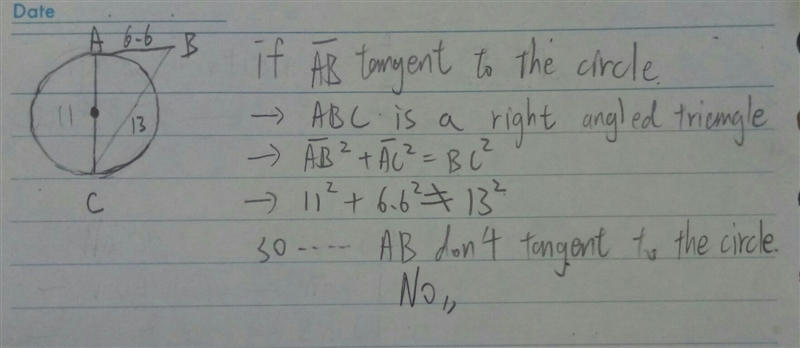 Date
A 6.6 B
11
13
C
if AB tangent to the circle.
→ ABC is a right angled triangle
→ AB² + AC² = BC²
→ 11² + 6.6² ≠ 13²
so ..... AB don't tangent to the circle.
No,,